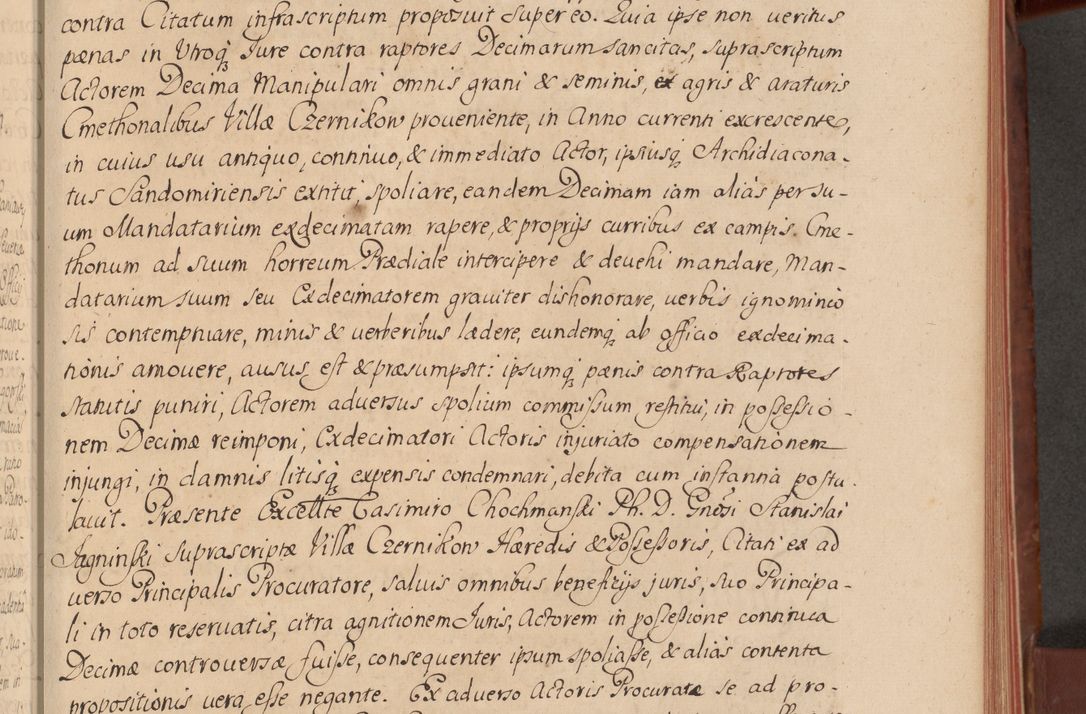 contra Citatum infrascriptum proposuit super eo. Quia ipse non veritus
pænas in Vtroq₃ Jure contra raptores Decimarum sancitas, suprascriptum
Actorem Decima Manipulari omnis grani & seminis, ex agris & araturis
Cmethonalibus Villæ Czernikow proveniente, in Anno currenti excrescente,
in cuius usu antiquo, continuo, & immediato Actor, ipsiusq₃ Archidiacona-
tus Sandomiriensis extitit, spoliare, eandem Decimam iam aliàs per su-
um Mandatarium exdecimatam rapere, & proprijs curribus ex campis Cme-
thonum ad suum horreum Prædiale intercipere & devehi mandare, Man-
datarium suum seu Exdecimatorem graviter dishonorare, verbis ignominio
sis contemptuare, minis & verberibus lædere, eundemq₃ ab officio exdecima-
tionis amovere, ausus est & præsumpsit: ipsumq₃ pænis contra Raptores
statutis puniri, Actorem adversus spolium commissum restitui, in possessio-
nem Decimæ reimponi, Exdecimatori Actoris injuriato compensationem
injungi, in damnis litisq₃ expensis condemnari, debita cum instantia postu-
lavit. Præsente Excellte Casimiro Chochmanski Ph. D. Gnosi Stanislai
Jagninski suprascriptæ Villæ Czernikow Hæredis & Possessoris, Citati ex ad
verso Principalis Procuratore, salvis omnibus beneficijs juris, suo Principa-
li in toto reservatis, citra agnitionem Juris, Actorem in possessione continua
Decimæ controversæ fuisse, consequenter ipsum spoliasse, & aliàs contenta
propositionis vera esse negante. Ex adverso Actoris Procurate se ad pro-